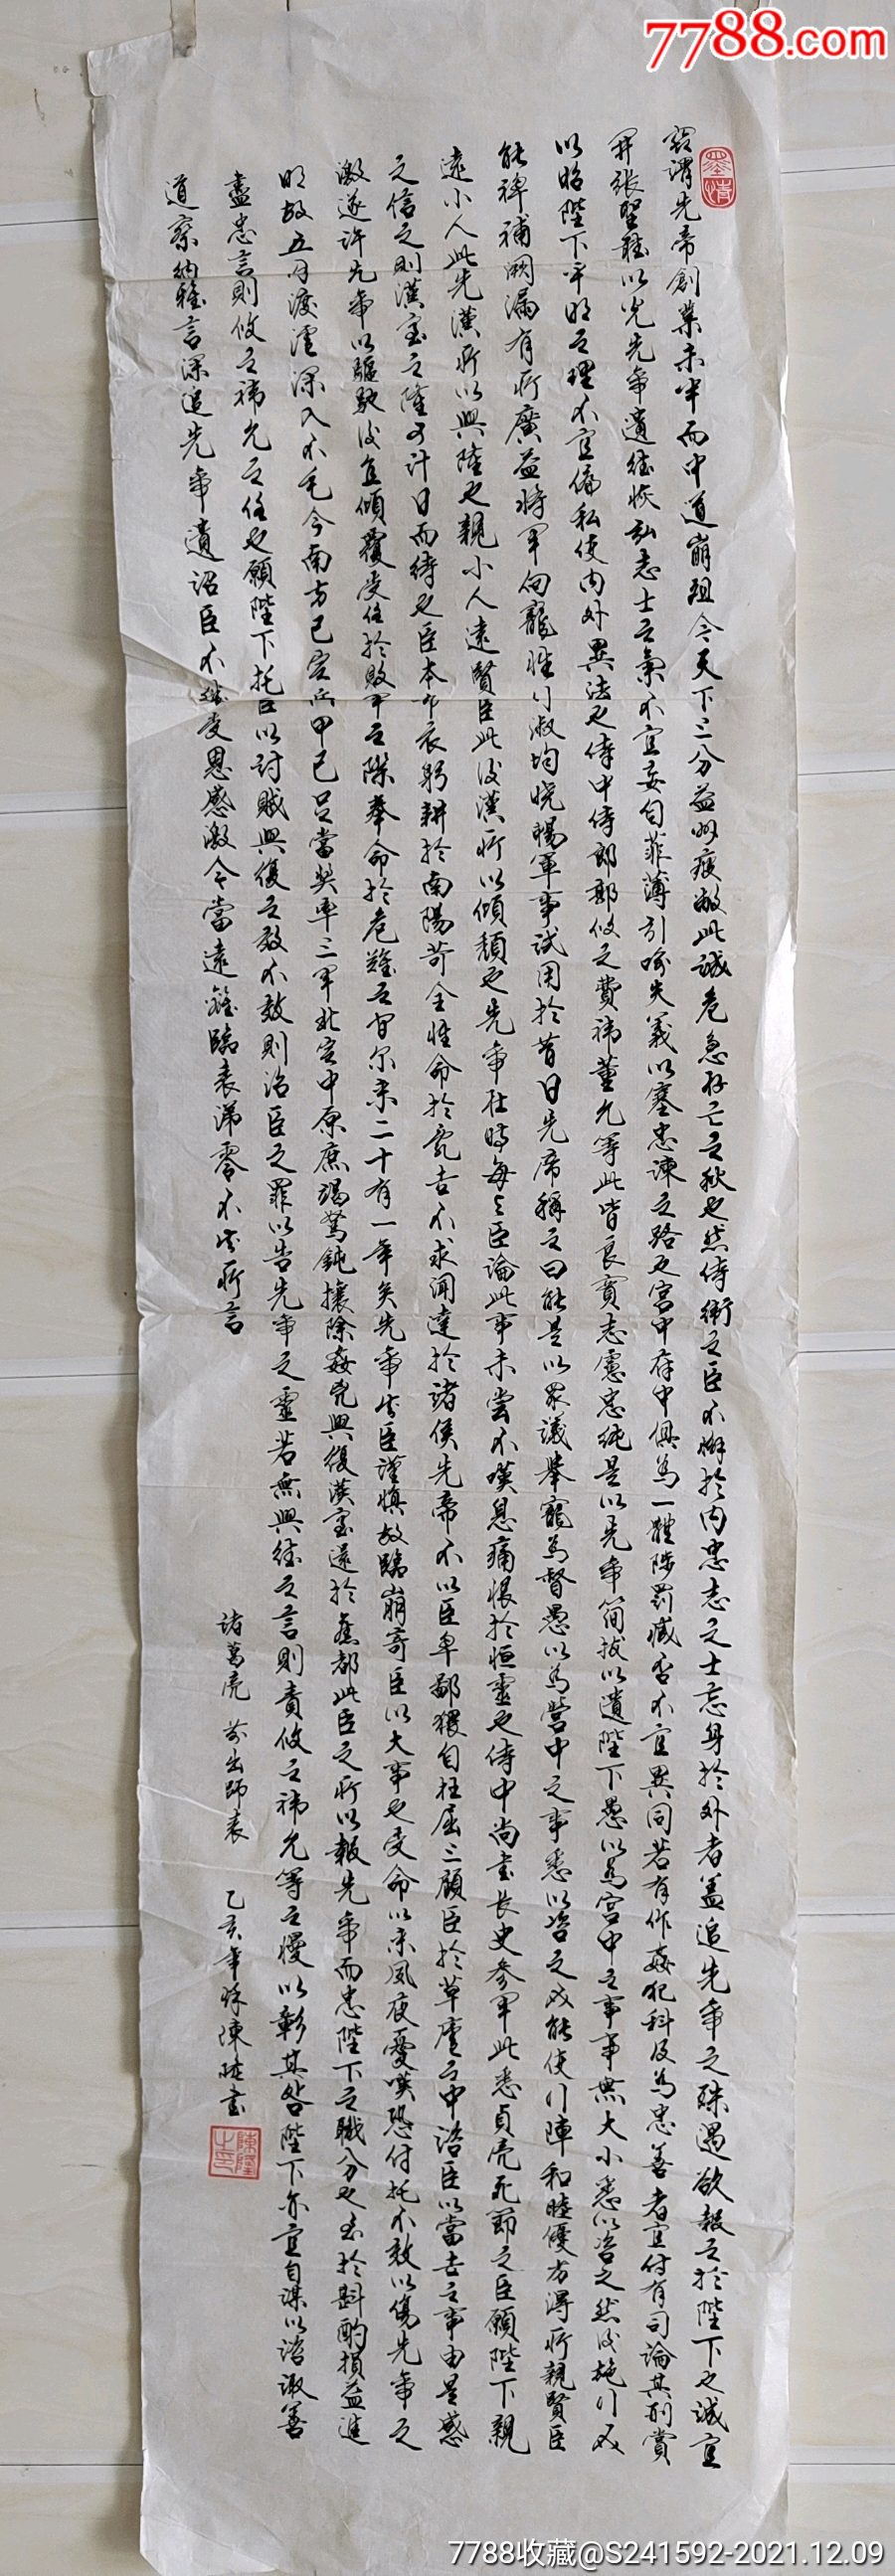 7788.com
墨情
窃謂先帝創業未半而中道崩殂今天下三分益州疲敝此誠危急存亡之秋也然侍衛之臣不懈於内忠志之士忘身於外者盖追先帝之殊遇欲報之於陛下也誠宜
開張聖聽以光先帝遺德恢弘志士之氣不宜妄自菲薄引喻失義以塞忠諫之路也宮中府中俱為一體陟罰臧否不宜異同若有作姦犯科及為忠善者宜付有司論其刑賞
以昭陛下平明之理不宜偏私使内外異法也侍中侍郎郭攸之費禕董允等此皆良實志慮忠純是以先帝簡拔以遺陛下愚以為宮中之事事無大小悉以咨之然後施行必
能裨補闕漏有所廣益將軍向寵性行淑均曉暢軍事試用於昔日先帝稱之曰能是以眾議舉寵為督愚以為營中之事悉以咨之必能使行陣和睦優劣得所親賢臣
遠小人此先漢所以興隆也親小人遠賢臣此後漢所以傾頹也先帝在時每與臣論此事未嘗不嘆息痛恨於桓靈也侍中尚書長史參軍此悉貞亮死節之臣願陛下親
之信之則漢室之隆可計日而待也臣本布衣躬耕於南陽苟全性命於亂世不求聞達於諸侯先帝不以臣卑鄙猥自枉屈三顧臣於草廬之中諮臣以當世之事由是感
激遂許先帝以驅馳後值傾覆受任於敗軍之際奉命於危難之間尔來二十有一年矣先帝知臣謹慎故臨崩寄臣以大事也受命以來夙夜憂嘆恐付托不效以傷先帝之
明故五月渡瀘深入不毛今南方已定兵甲已足當奬率三軍北定中原庶竭駑鈍攘除姦凶興復漢室還於舊都此臣之所以報先帝而忠陛下之職分也至於斟酌損益進
盡忠言則攸之禕允之任也願陛下托臣以討賊興復之效不效則治臣之罪以告先帝之靈若無興德之言則責攸之禕允等之慢以彰其咎陛下亦宜自謀以諮諏善
道察納雅言深追先帝遺詔臣不勝受恩感激今當遠離臨表涕零不知所言
諸葛亮 前出師表 乙亥年 陳陸书
陳陸之印
7788收藏@S241592-2021.12.09